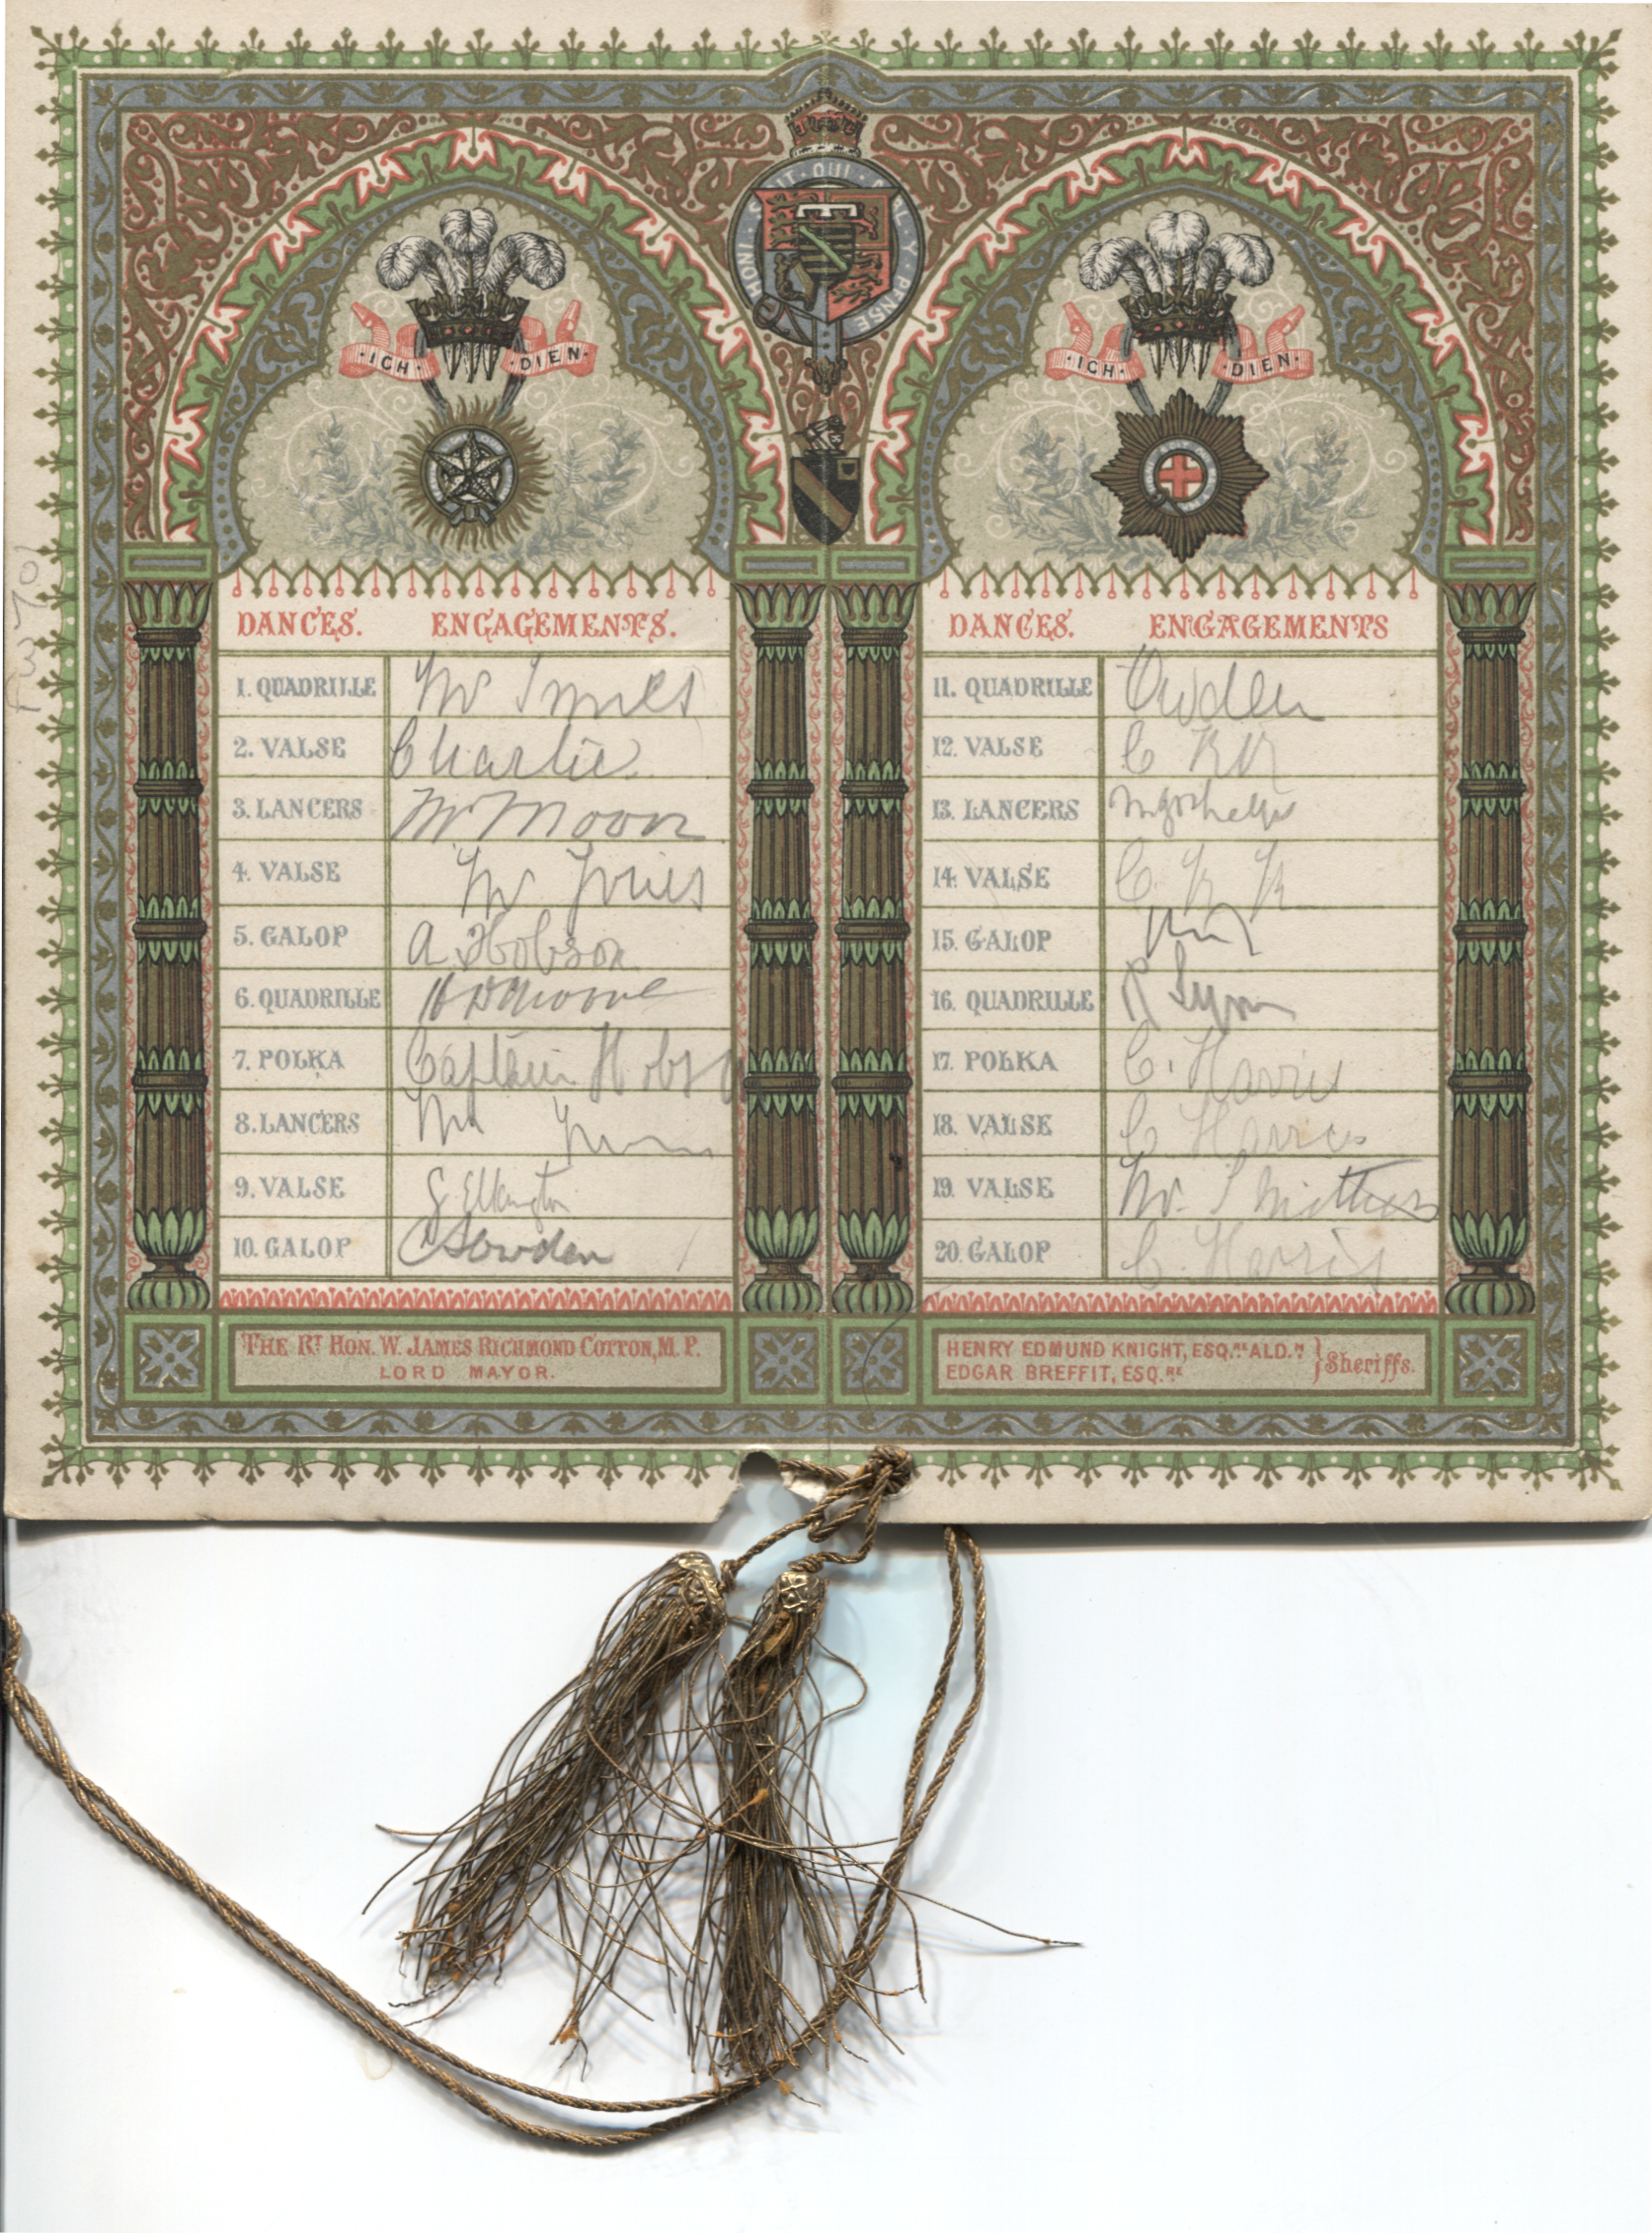 HONI · SOIT · QUI · MAL · Y · PENSE
· ICH · DIEN ·
DANCES. ENGAGEMENTS.
1. QUADRILLE Mr
2. VALSE Charlie
3. LANCERS Mr Moon
4. VALSE Mr
5. GALOP A. Hobson
6. QUADRILLE
7. POLKA Captain Hobson
8. LANCERS Mr
9. VALSE G. Elkington
10. GALOP Cowden
THE RT HON. W. JAMES RICHMOND COTTON, M. P.
LORD MAYOR.
· ICH · DIEN ·
DANCES. ENGAGEMENTS
11. QUADRILLE Owden
12. VALSE C
13. LANCERS
14. VALSE C.
15. GALOP
16. QUADRILLE
17. POLKA C. Harris
18. VALSE C Harris
19. VALSE Mr.
20. GALOP C. Harris
HENRY EDMUND KNIGHT, ESQ.RE ALD.N
EDGAR BREFFIT, ESQ.RE
} Sheriffs.